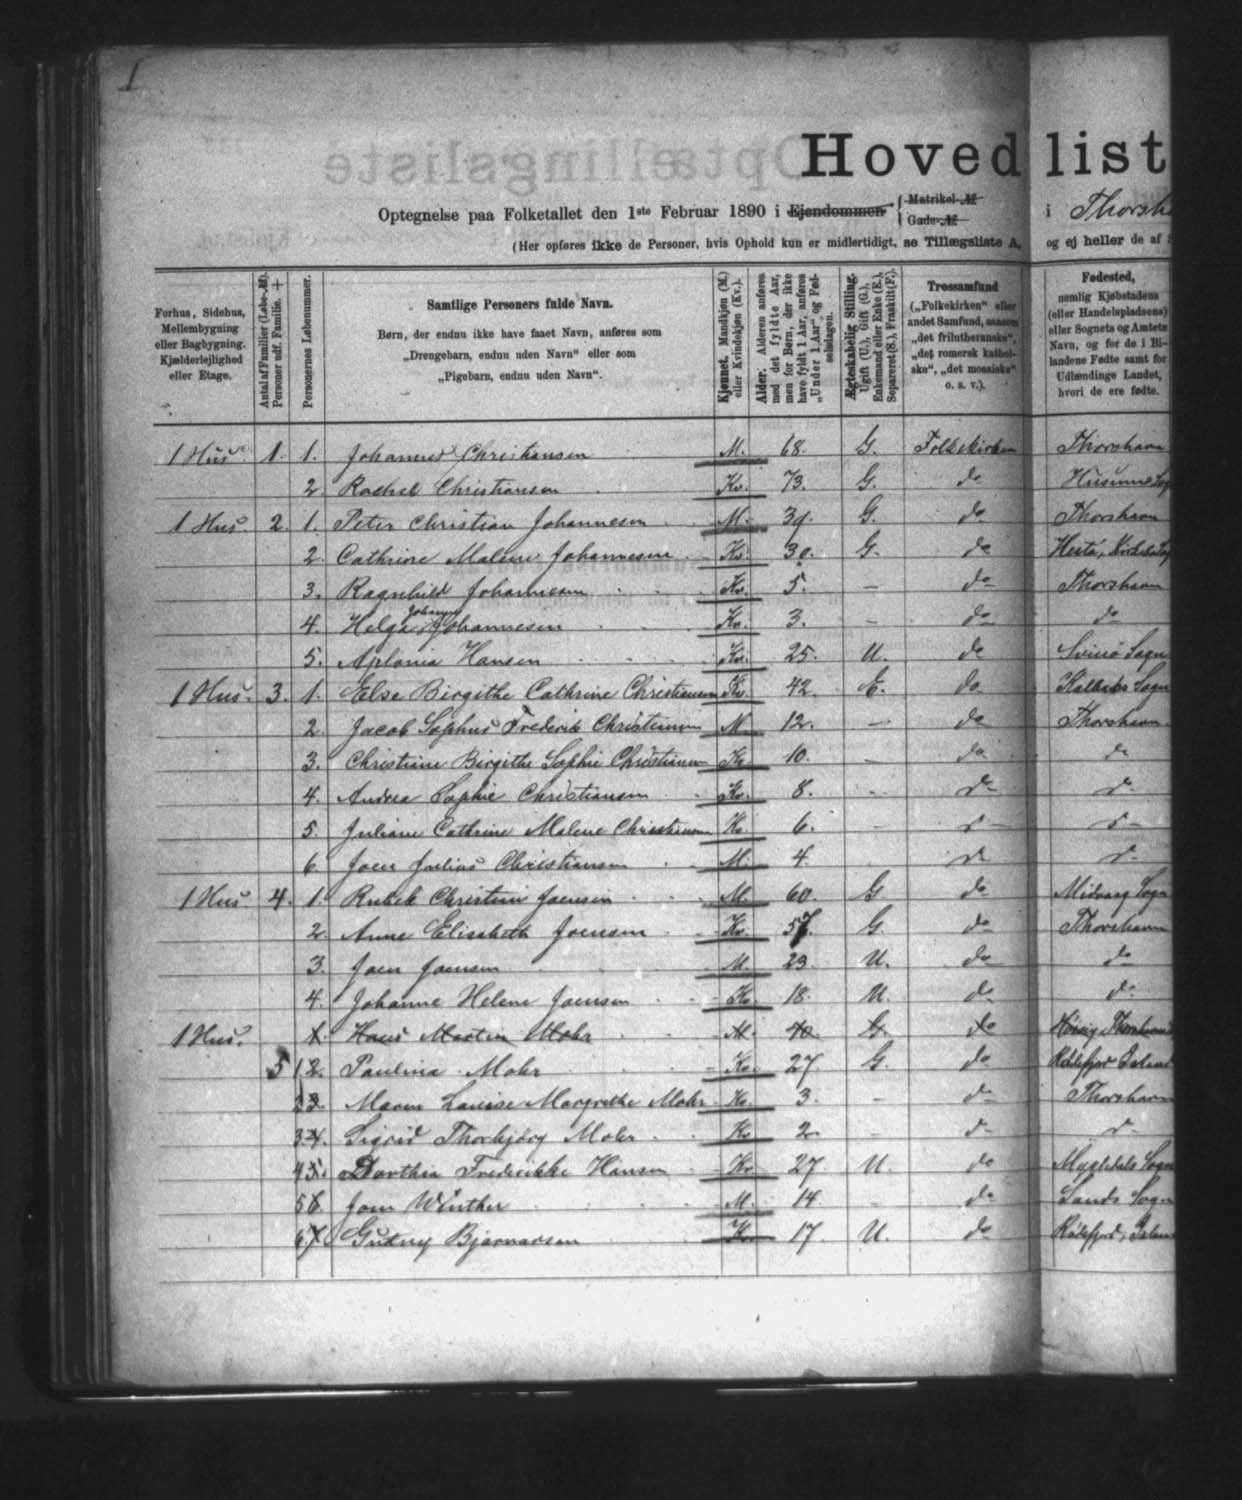 1
Hovedlist
Optegnelse paa Folketallet den 1ste Februar 1890 i Ejendommen { Matrikel-№ Gade-№ i Thorsh
(Her opføres ikke de Personer, hvis Ophold kun er midlertidigt, se Tillægsliste A, og ej heller de af
Forhus, Sidehus, Mellembygning eller Bagbygning. Kjælderlejlighed eller Etage.
Antal af Familier (Løbe-№). Personer udf. Familie. +
Personernes Løbenummer.
Samtlige Personers fulde Navn.
Børn, der endnu ikke have faaet Navn, anføres som „Drengebarn, endnu uden Navn“ eller som „Pigebarn, endnu uden Navn“.
Kjønnet. Mandkjøn (M.) eller Kvindekjøn (Kv.).
Alder. Alderen anføres med det fyldte Aar, men for Børn, der ikke have fyldt 1 Aar, anføres „Under 1 Aar“ og Fødselsdagen.
Ægteskabelig Stilling. Ugift (U.), Gift (G.), Enkemand eller Enke (E.), Separeret (S.), Fraskilt (F.).
Trossamfund („Folkekirken“ eller andet Samfund, saasom „det frilutheranske“, „det romersk katholske“, „det mosaiske“ o. s. v.).
Fødested, nemlig Kjøbstadens (eller Handelspladsens) eller Sognets og Amtets Navn, og for de i Bilandene Fødte samt for Udlændinge Landet, hvori de ere fødte.
1 Hus 1. 1. Johannes Christiansen M. 68. G. Folkekirken Thorshavn
2. Rachel Christiansen Kv. 73. G. do Husum Sog
1 Hus. 2. 1. Peter Christian Johannesen M. 39. G. do Thorshavn
2. Cathrine Malene Johannesen Kv. 30. G. do
3. Ragnhild Johannesen Kv. 5. – do Thorshavn
4. Helga Johannesen Kv. 3. – do do
5. Aplonia Hansen Kv. 25. U. do Svinø Sogn
1 Hus. 3. 1. Else Birgithe Cathrine Christiansen Kv. 42. E. do Kalbaks Sogn
2. Jacob Sophus Frederik Christiansen M 12. – do Thorshavn
3. Christiane Birgithe Sophie Christiansen Kv 10. – do do
4. Andrea Sophie Christiansen Kv. 8. – do do
5. Juliane Cathrine Malene Christiansen Kv. 6. – do do
6. Joen Julius Christiansen M. 4. do do
1 Hus 4. 1. Rubek Christian Joensen M. 60. G do Midvaag Sogn
2. Anne Elisabeth Joensen Kv. 57. G. do Thorshavn
3. Joen Joensen M. 23. U. do do
4. Johanne Helene Joensen Kv. 18. U. do do
1 Hus. 1. Hans Martin Mohr M. 40. G. do Thorshavn
5 1 2. Paulina Mohr Kv. 27 G. do
2 3. Maren Louise Margrethe Mohr Kv. 3. – do Thorshavn
3 4. Sigrid Thorbjörg Mohr Kv 2 – do do
4 5. Dorthia Frederikke Hansen Kv 27 U. do Sogn
5 6. Joen Winther M. 14 – do Sands Sogn
6 7. Gudny Bjarnarsen K. 17 U. do